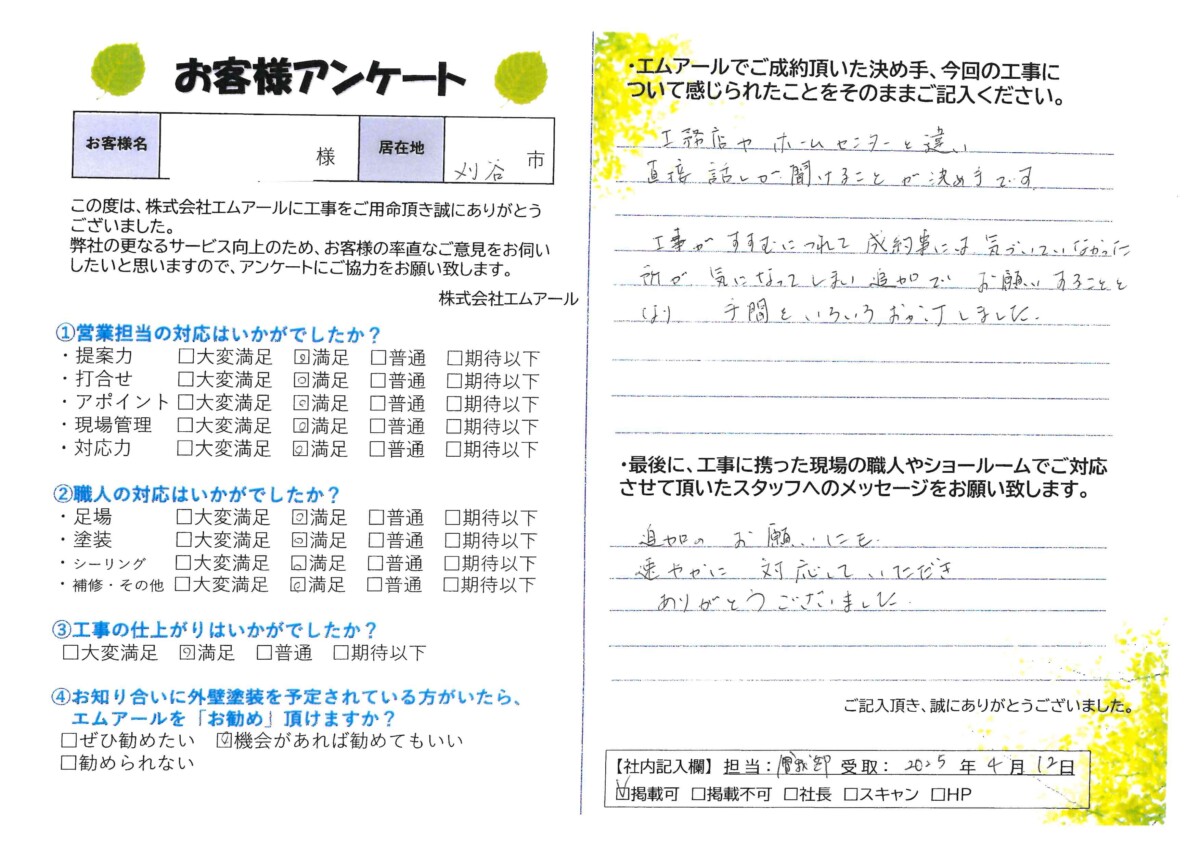 お客様アンケート
お客様名 様 居在地 刈谷 市
この度は、株式会社エムアールに工事をご用命頂き誠にありがとう
ございました。
弊社の更なるサービス向上のため、お客様の率直なご意見をお伺い
したいと思いますので、アンケートにご協力をお願い致します。
株式会社エムアール
①営業担当の対応はいかがでしたか？
・提案力 □大変満足 ☑満足 □普通 □期待以下
・打合せ □大変満足 ☑満足 □普通 □期待以下
・アポイント □大変満足 ☑満足 □普通 □期待以下
・現場管理 □大変満足 ☑満足 □普通 □期待以下
・対応力 □大変満足 ☑満足 □普通 □期待以下
②職人の対応はいかがでしたか？
・足場 □大変満足 ☑満足 □普通 □期待以下
・塗装 □大変満足 ☑満足 □普通 □期待以下
・シーリング □大変満足 ☑満足 □普通 □期待以下
・補修・その他 □大変満足 ☑満足 □普通 □期待以下
③工事の仕上がりはいかがでしたか？
□大変満足 ☑満足 □普通 □期待以下
④お知り合いに外壁塗装を予定されている方がいたら、
エムアールを「お勧め」頂けますか？
□ぜひ勧めたい ☑機会があれば勧めてもいい
□勧められない
・エムアールでご成約頂いた決め手、今回の工事に
ついて感じられたことをそのままご記入ください。
工務店やホームセンターと違い
直接話しが聞けることが決め手です
工事がすすむにつれて成約事には気づいていなかった
所が気になってしまい追加でお願いすることと
なり 手間をいろいろおかけしました.
・最後に、工事に携った現場の職人やショールームでご対応
させて頂いたスタッフへのメッセージをお願い致します。
追加のお願いにも
速やかに対応していただき
ありがとうございました.
ご記入頂き、誠にありがとうございました。
【社内記入欄】担当： 受取：2025年4月12日
☑掲載可 □掲載不可 □社長 □スキャン □HP